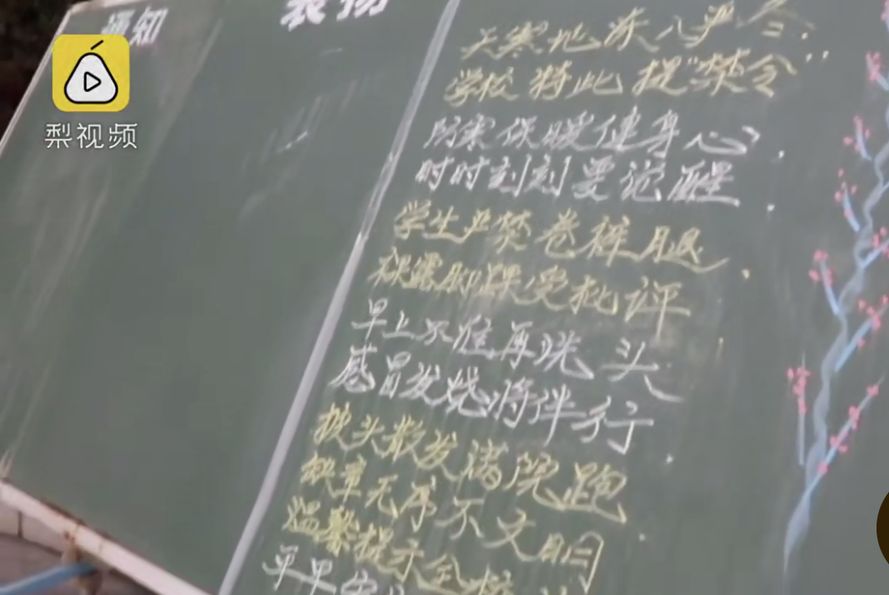 通知
表扬
梨视频
天寒地冻入严冬.
学校特此提"禁令"
防寒保暖健身心,
时时刻刻要记醒.
学生严禁卷裤腿,
裸露脚踝受批评
早上不准再洗头
感冒发烧将伴行.
披头散发满院跑
缺章无序不文明.
温馨提示全校
平平安